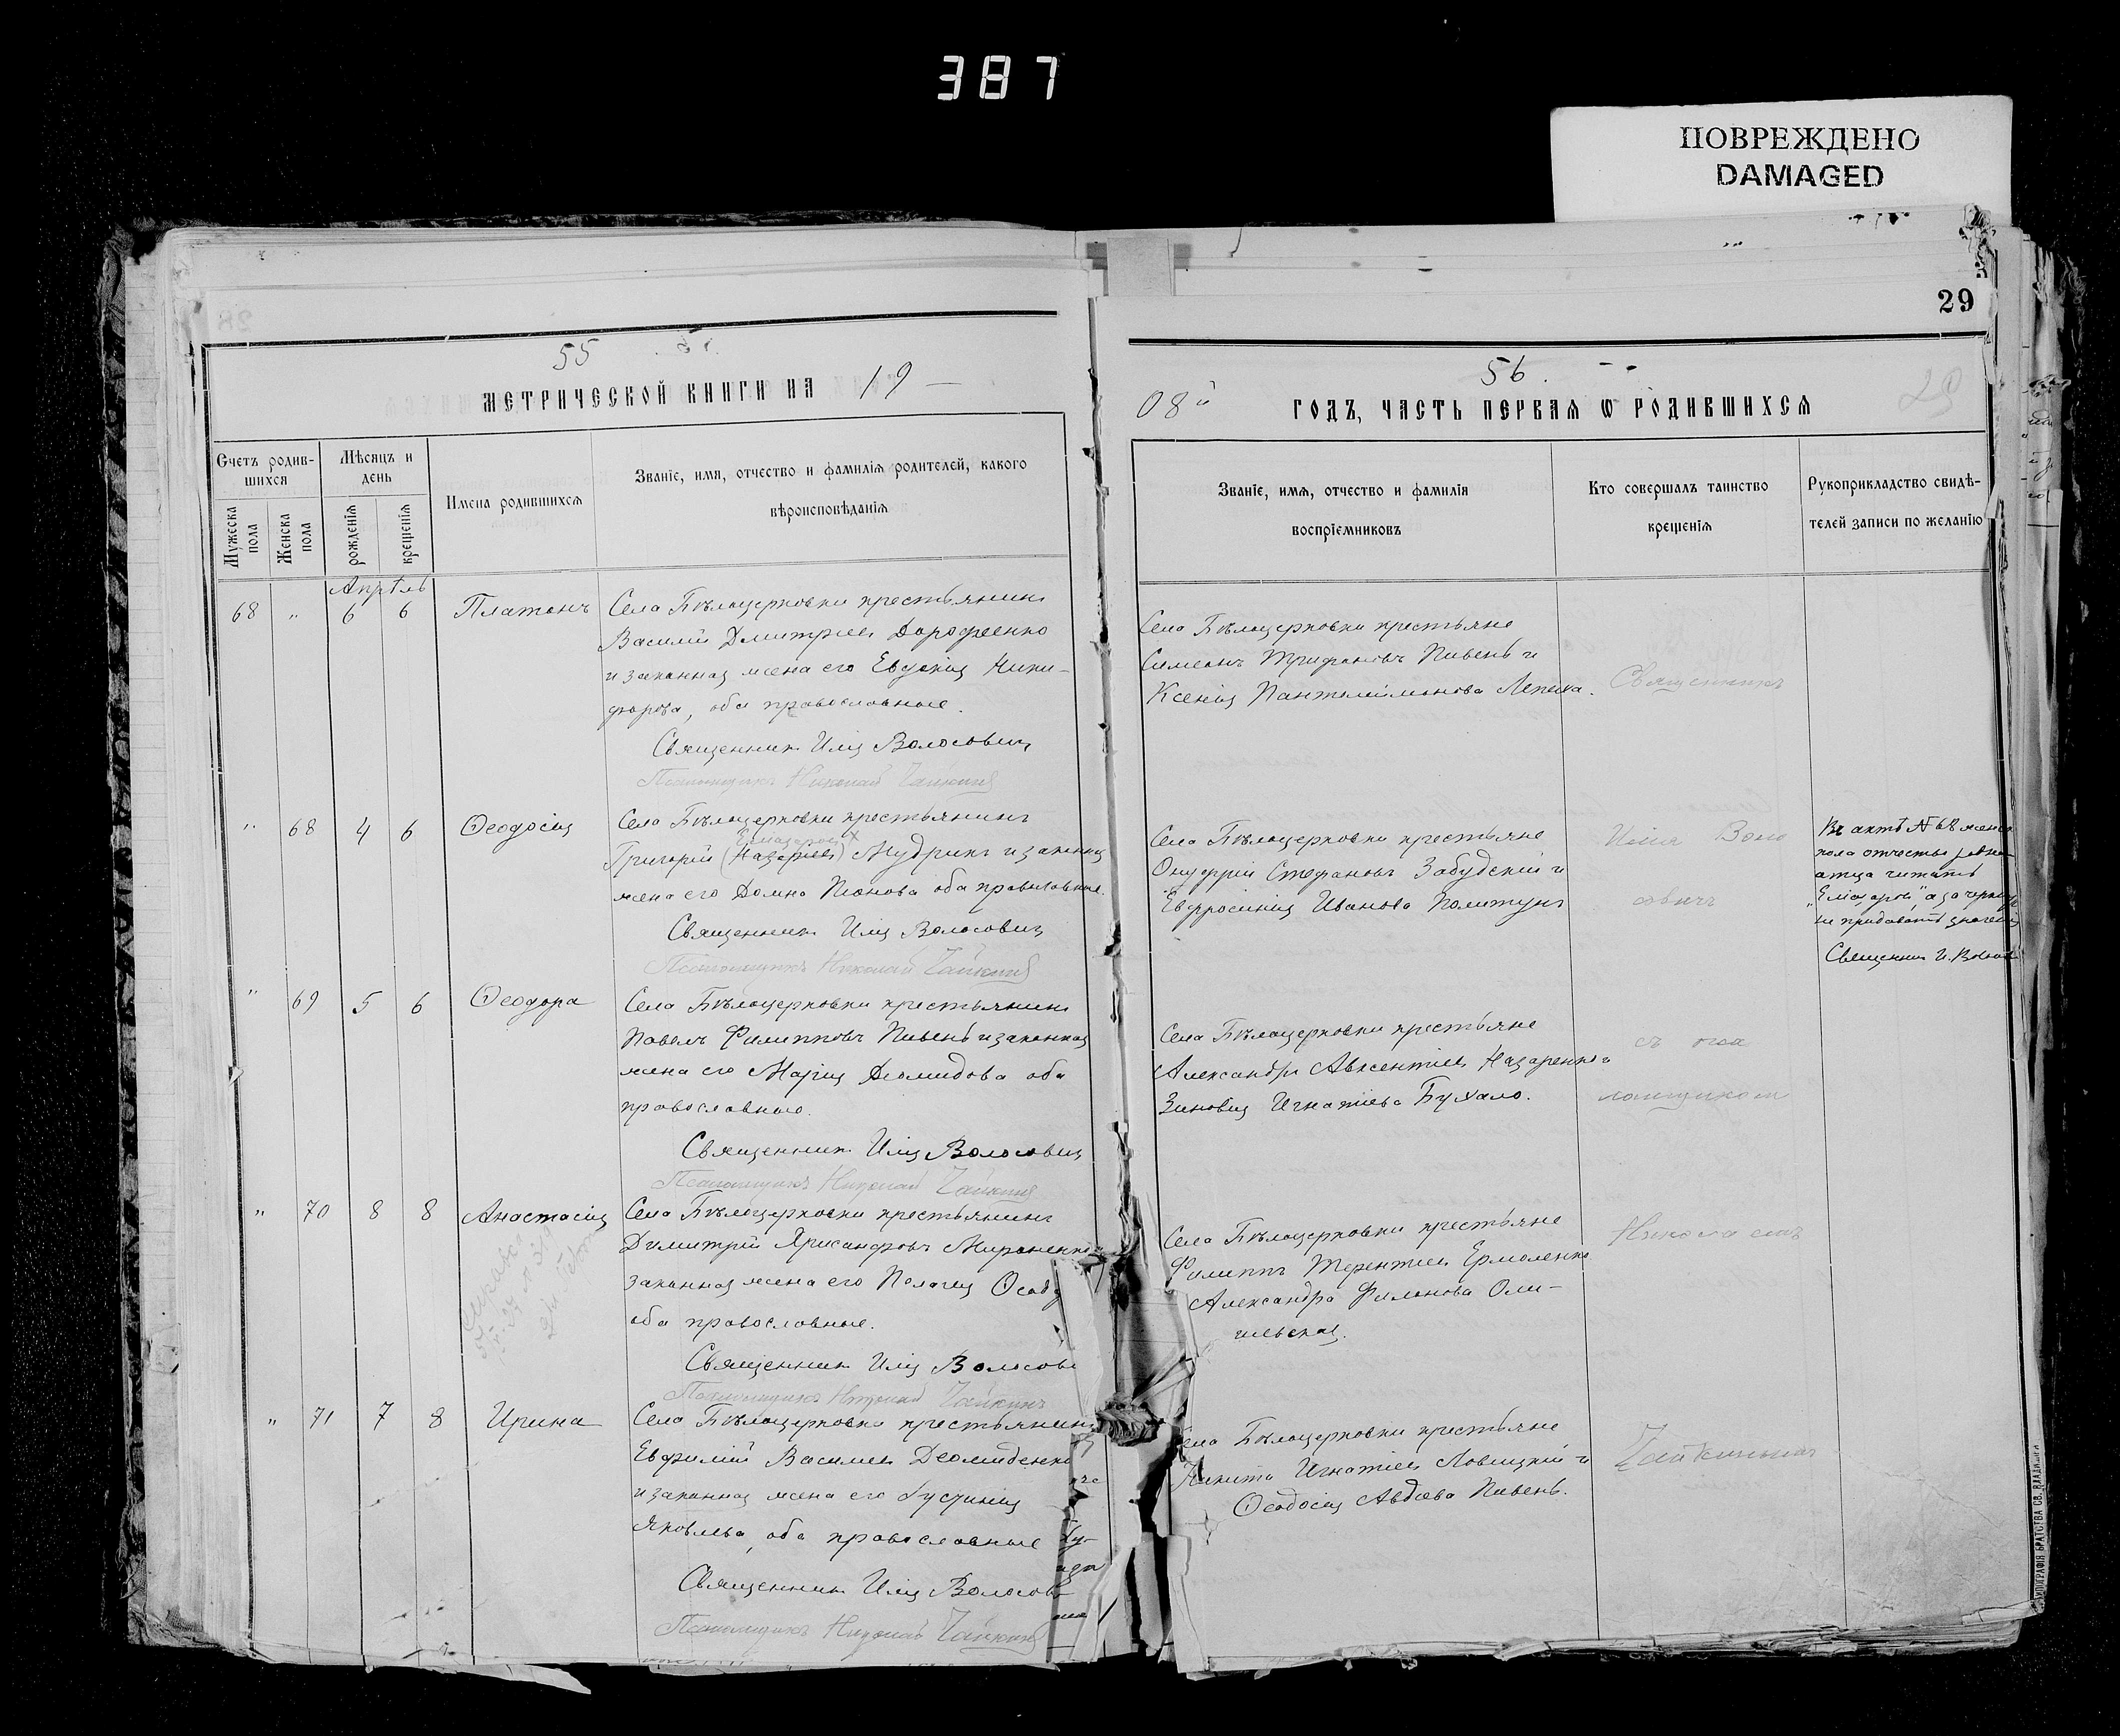 387
ПОВРЕЖДЕНО
DAMAGED
29
55
МЕТРИЧЕСКОЙ КНИГИ НА 19
Счетъ родив-
шихся
Мѣсяцъ и
день
Имена родившихся
Званіе, имя, отчество и фамилія родителей, какого
вѣроисповѣданія
Мужеска пола
Женска пола
рожденія
крещенія
Апрѣль
68 " 6 6 Платонъ Села Бѣлоцерковки крестьянинъ
Василій Дмитріевъ Дорофеенко
и законная жена его Евдокія Ники-
форова, оба православные.
Священникъ Илія Волосовичъ
Псаломщикъ Николай Чайкинъ
" 68 4 6 Ѳеодосія Села Бѣлоцерковки крестьянинъ
Елиазаровъ
Григорій (Назаріевъ) Мудрикъ и законная
жена его Домна Іонова оба православные.
Священникъ Илія Волосовичъ
Псаломщикъ Николай Чайкинъ
" 69 5 6 Ѳеодора Села Бѣлоцерковки крестьянинъ
Павелъ Филипповъ Пивень и законная
жена его Марія Діомидова оба
православные.
Священникъ Илія Волосовичъ
Псаломщикъ Николай Чайкинъ
" 70 8 8 Анастасія Села Бѣлоцерковки крестьянинъ
Димитрій Мироненко
законная жена его Пелагія Ѳеод
оба православные.
Священникъ Илія Волосови
Псаломщикъ Николай Чайкинъ
" 71 7 8 Ирина Села Бѣлоцерковки крестьянинъ
Евфимій Василіевъ Деомиденко
и законная жена его Іустинія
Яковлева, оба православные
Священникъ Илія Волосов
Псаломщикъ Николай Чайкинъ
56.
08й ГОДЪ, ЧАСТЬ ПЕРВАЯ Ѡ РОДИВШИХСЯ
29
Званіе, имя, отчество и фамилія
воспріемниковъ
Кто совершалъ таинство
крещенія
Рукоприкладство свидѣ-
телей записи по желанію
Села Бѣлоцерковки крестьяне
Симеонъ Трифоновъ Пивень и
Ксенія Пантелеймонова Лепеха.
Священникъ
Села Бѣлоцерковки крестьяне
Онуфрій Стефановъ Забудскій и
Евфросинія Иванова Политунъ
Илія Воло
совичъ
Въ актѣ № 68 женск
пола отчество
отца читать
„Елиазаровъ", а зачеркн
не придавать значенія
Священникъ И. Волосов
Села Бѣлоцерковки крестьяне
Александръ Авксентіевъ Назаренко и
Зиновія Игнатіева Бухало.
съ пса
ломщикомъ
Села Бѣлоцерковки крестьяне
Филиппъ Терентіевъ Ермоленко
Александра Филонова Оли-
шевская.
Николаемъ
Села Бѣлоцерковки крестьяне
Никита Игнатіевъ Ловицкій и
Ѳеодосія Авдіева Пивень.
Чайкинымъ
ТИПОГРАФІЯ БРАТСТВА СВ. ВЛАДИМІРА